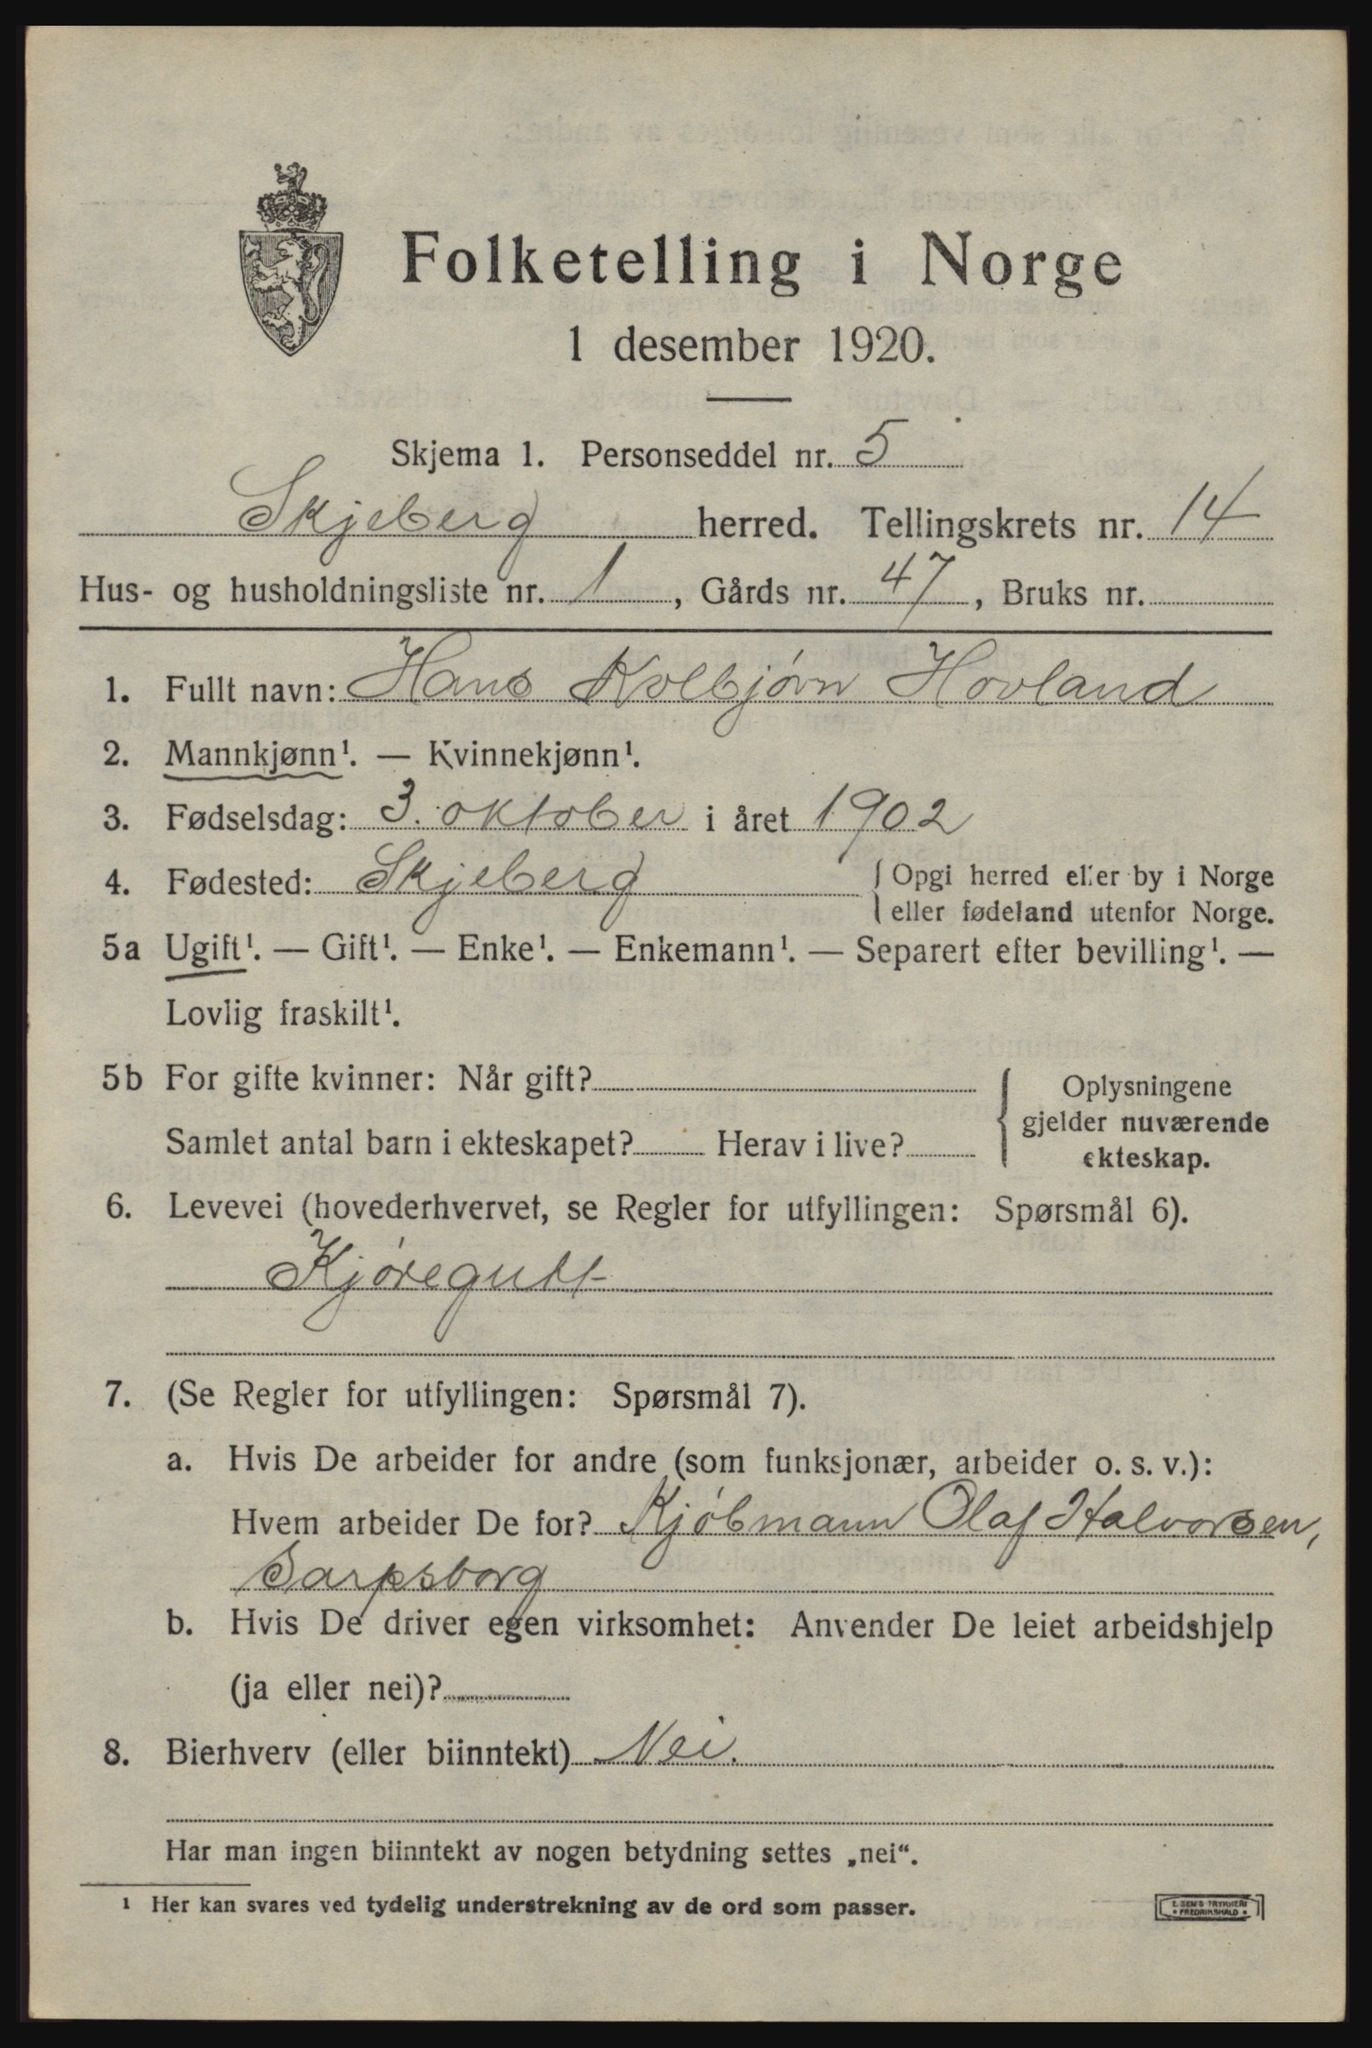 Folketelling i Norge
1 desember 1920.
Skjema 1. Personseddel nr. 5
Skjeberg herred. Tellingskrets nr. 14
Hus- og husholdningsliste nr. 1, Gårds nr. 47, Bruks nr.
1. Fullt navn: Hans Kolbjørn Hovland
2. Mannkjønn¹. — Kvinnekjønn¹.
3. Fødselsdag: 3. oktober i året 1902
4. Fødested: Skjeberg { Opgi herred eller by i Norge
eller fødeland utenfor Norge.
5a Ugift¹. — Gift¹. — Enke¹. — Enkemann¹. — Separert efter bevilling¹. —
Lovlig fraskilt¹.
5b For gifte kvinner: Når gift? { Oplysningene
gjelder nuværende
Samlet antal barn i ekteskapet? Herav i live?
ekteskap.
6. Levevei (hovederhvervet, se Regler for utfyllingen: Spørsmål 6).
Kjøregutt
7. (Se Regler for utfyllingen: Spørsmål 7).
a. Hvis De arbeider for andre (som funksjonær, arbeider o. s. v.):
Hvem arbeider De for? Kjøbmann Olaf Halvorsen,
Sarpsborg
b. Hvis De driver egen virksomhet: Anvender De leiet arbeidshjelp
(ja eller nei)?
8. Bierhverv (eller biinntekt) Nei.
Har man ingen biinntekt av nogen betydning settes „nei“.
¹ Her kan svares ved tydelig understrekning av de ord som passer.
FREDRIKSHALD